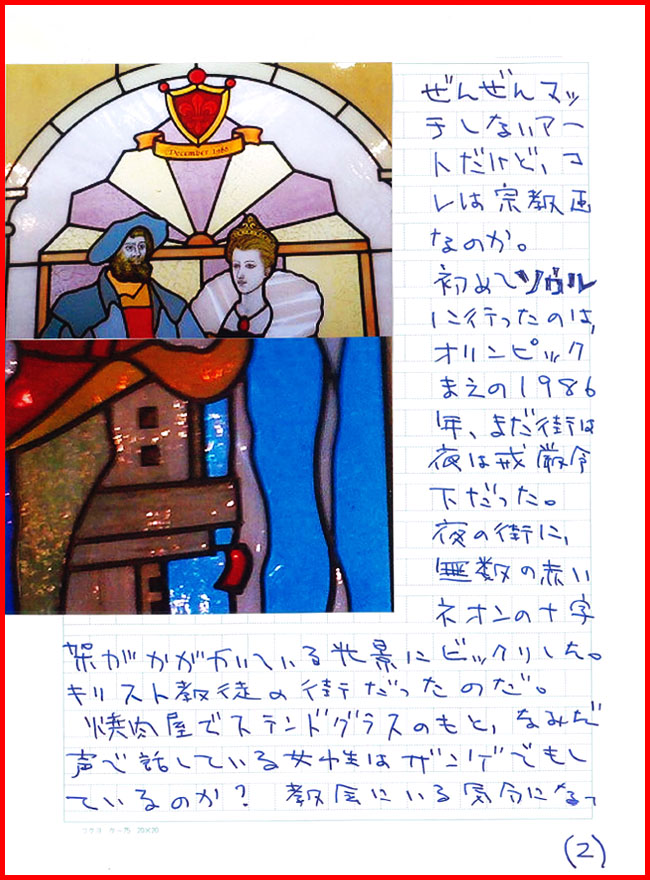 December 1985
ぜんぜんマッ
チしないアー
トだけど、コ
レは宗教画
なのか。
初めてソウル
に行ったのは、
オリンピック
まえの1986
年、まだ街は
夜は戒厳令
下だった。
夜の街に、
無数の赤い
ネオンの十字
架がかががいている光景にビックリした。
キリスト教徒の街だったのだ。
焼肉屋でステンドグラスのもと、なみだ
声で話している女性はザンゲでもし
ているのか? 教会にいる気分になっ
コクヨ ケー75 20×20
(2)